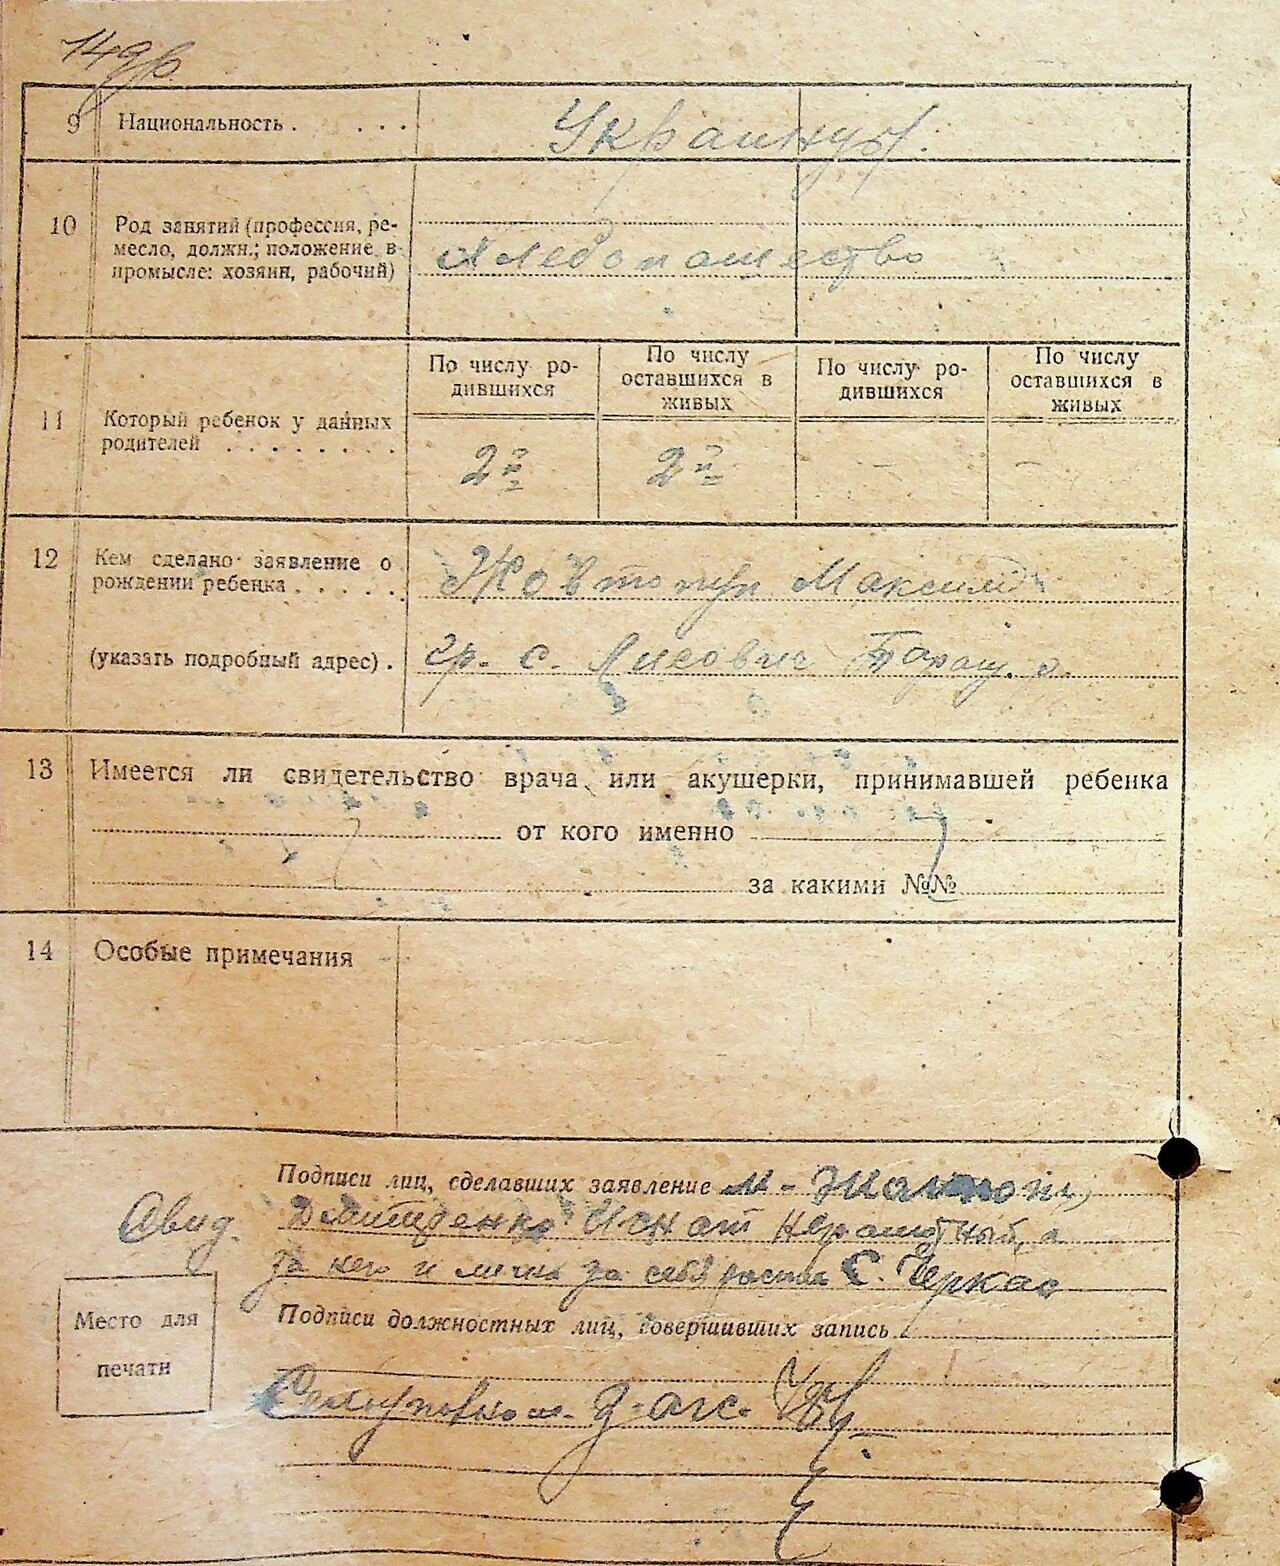 9 Национальность . . . . Украинцы.
10 Род занятий (профессия, ре-
месло, должн.; положение в
промысле: хозяин, рабочий)
Хлебопашество
По числу ро-
дившихся
По числу
оставшихся в
живых
По числу ро-
дившихся
По числу
оставшихся в
живых
11 Который ребенок у данных
родителей . . . . . . . .
2й 2й – –
12 Кем сделано заявление о
рождении ребенка . . . . .
Жовтопуп Максим
(указать подробный адрес) . гр. с. Лисовичи Таращ. р.
13 Имеется ли свидетельство врача или акушерки, принимавшей ребенка
от кого именно
за какими №№
14 Особые примечания
Подписи лиц, сделавших заявление М-
Свид. Игнат неграмотный, а
за него и лично за себя С. Черкас
Место для
печати
Подписи должностных лиц, совершивших запись